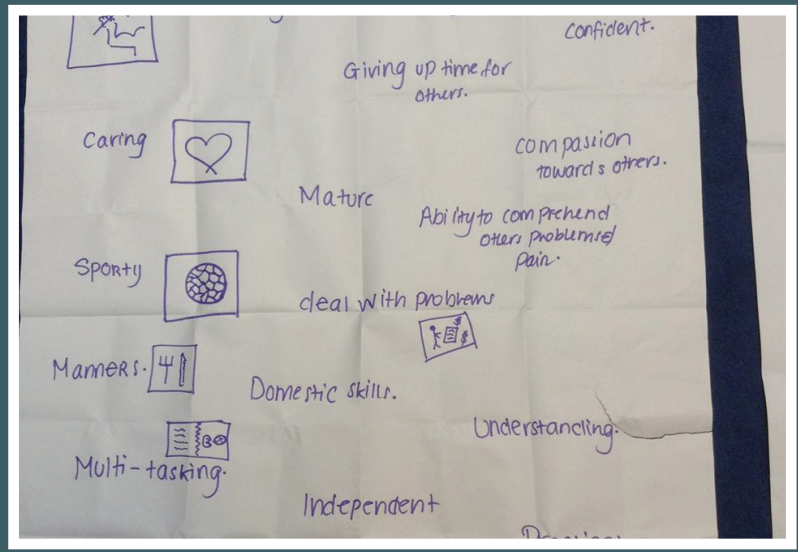 confident.
Giving up time for
others.
Caring
compassion
towards others.
Mature
Ability to comprehend
others problems &
pain.
Sporty
deal with problems
Manners.
Domestic skills.
Understanding.
Multi-tasking.
Independent